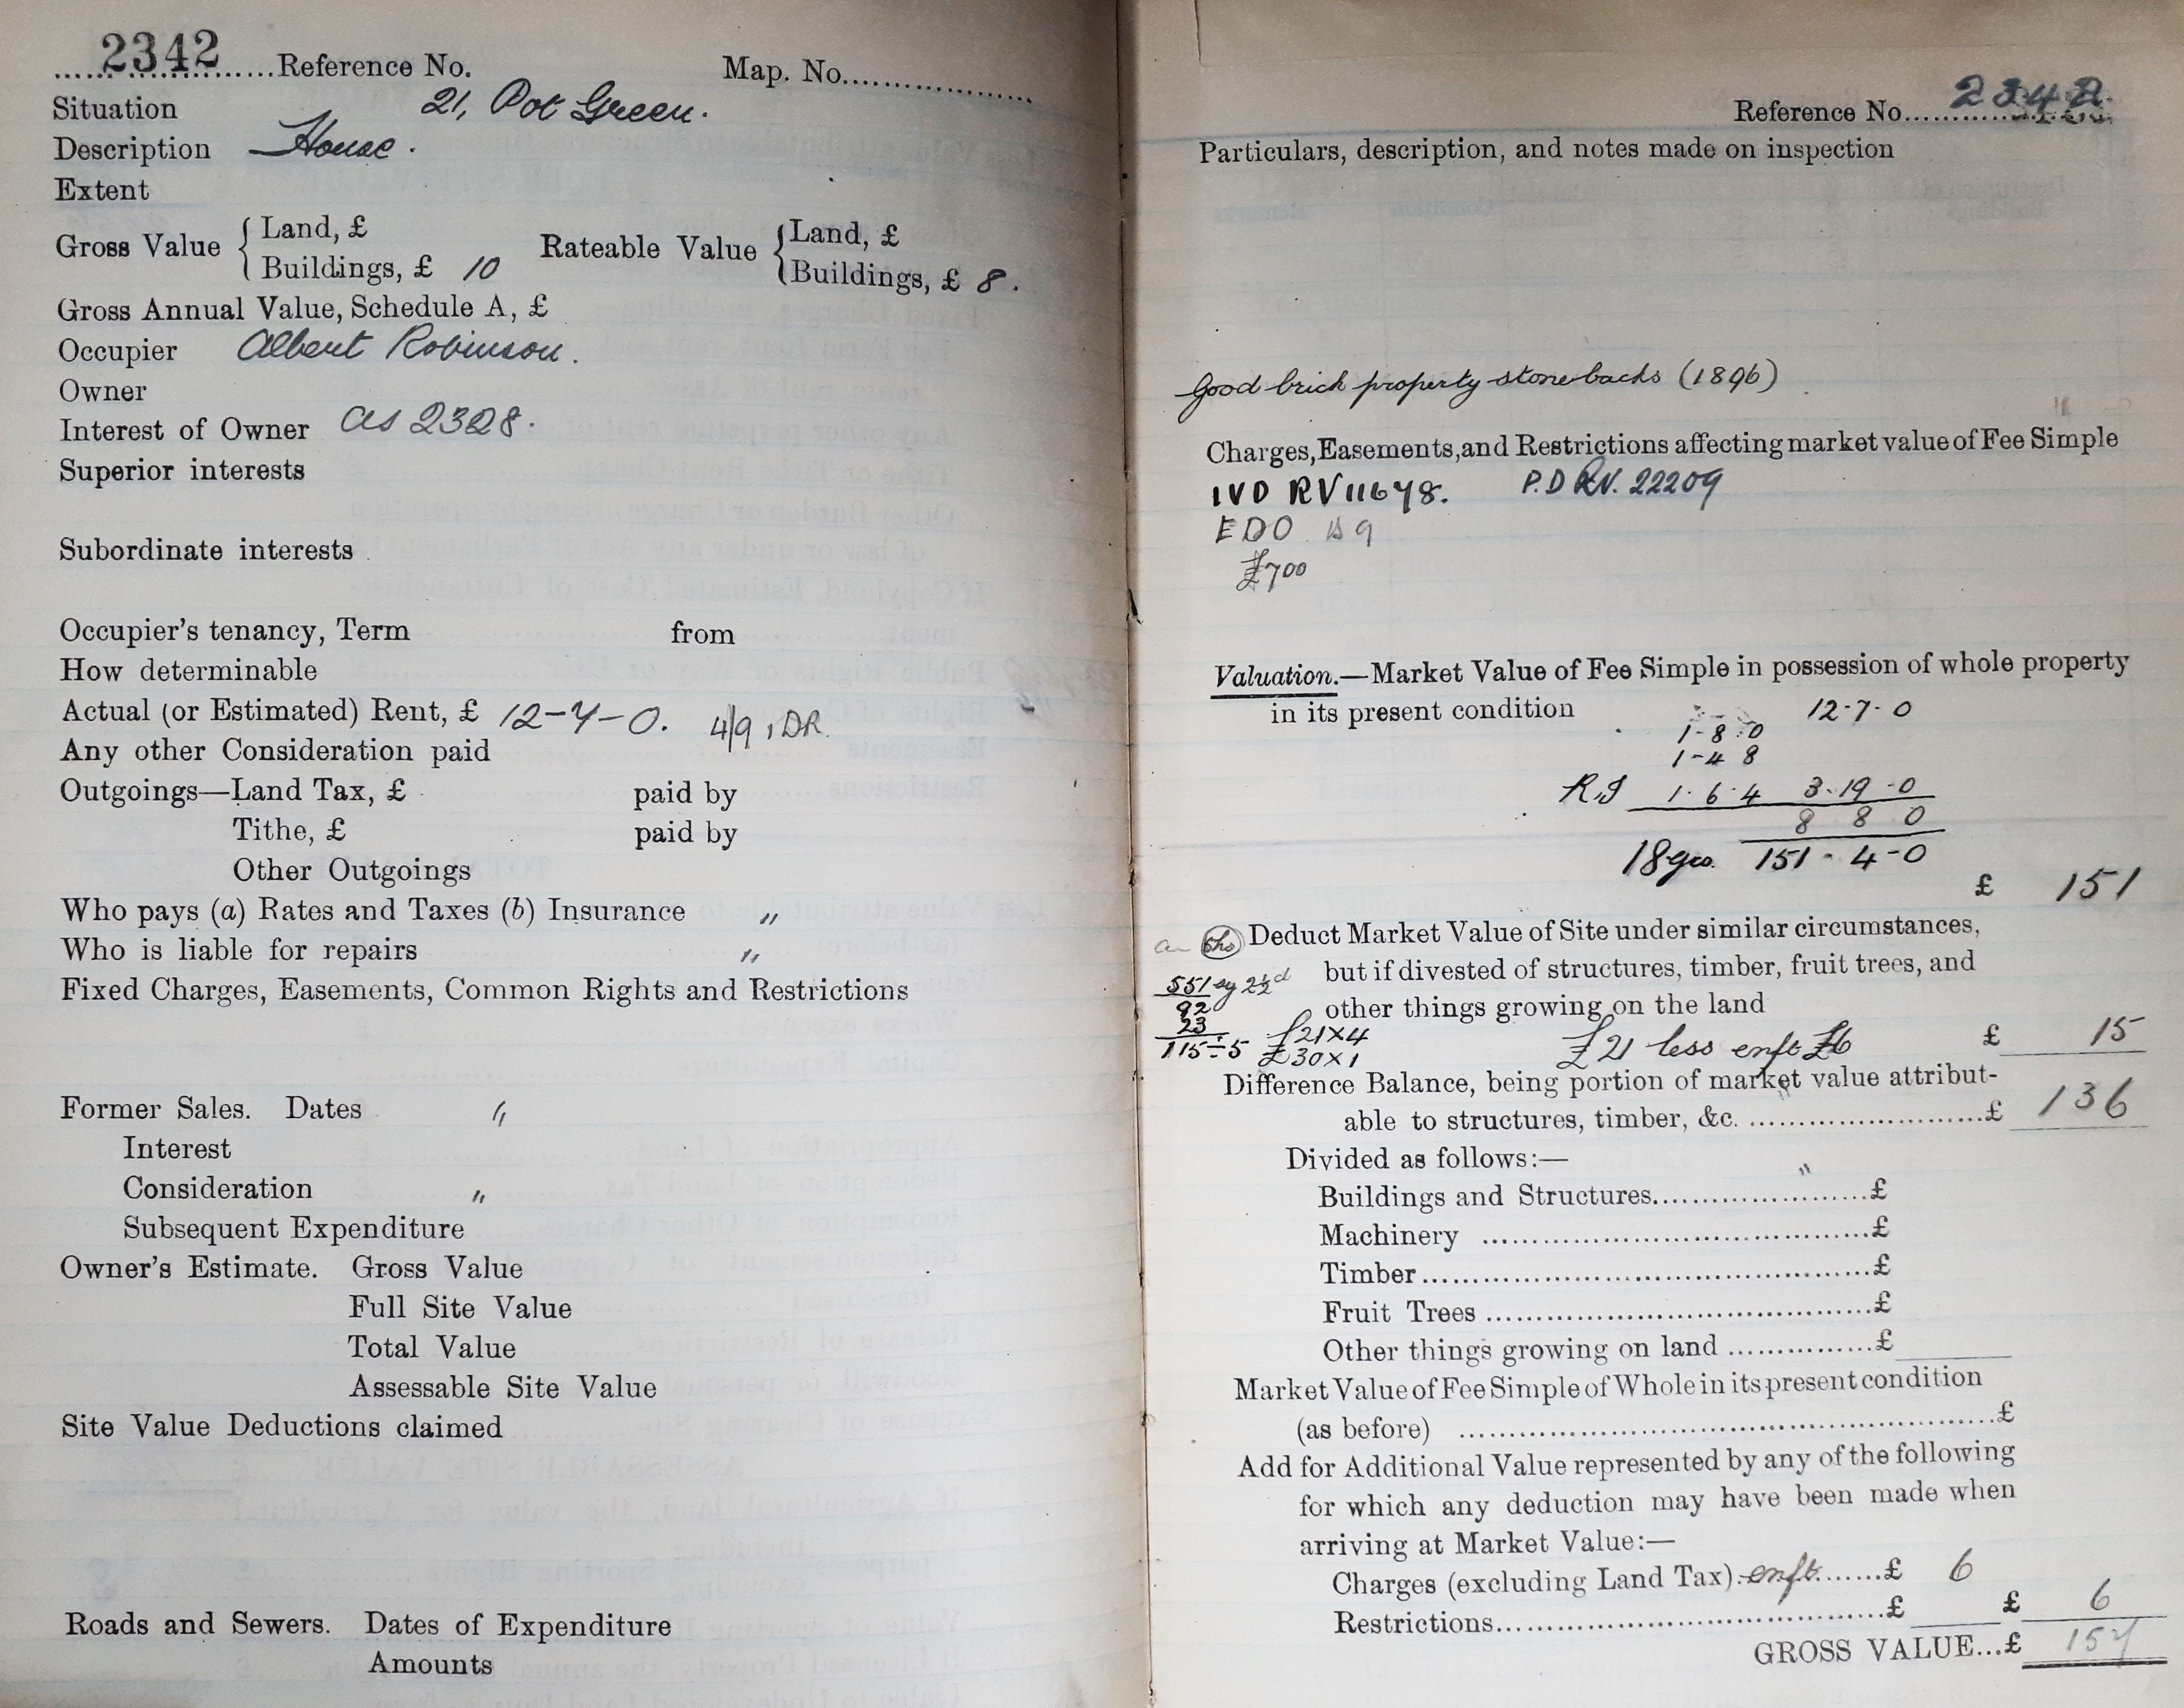 2342 Reference No. Map. No.
Situation 21, Pot Green.
Description House.
Extent
Gross Value { Land, £ Rateable Value { Land, £
Buildings, £ 10 Buildings, £ 8.
Gross Annual Value, Schedule A, £
Occupier Albert Robinson.
Owner
Interest of Owner as 2328.
Superior interests
Subordinate interests
Occupier's tenancy, Term from
How determinable
Actual (or Estimated) Rent, £ 12-7-0. 4/9, DR.
Any other Consideration paid
Outgoings—Land Tax, £ paid by
Tithe, £ paid by
Other Outgoings
Who pays (a) Rates and Taxes (b) Insurance "
Who is liable for repairs "
Fixed Charges, Easements, Common Rights and Restrictions
Former Sales. Dates "
Interest
Consideration "
Subsequent Expenditure
Owner's Estimate. Gross Value
Full Site Value
Total Value
Assessable Site Value
Site Value Deductions claimed
Roads and Sewers. Dates of Expenditure
Amounts
Reference No. 2342
Particulars, description, and notes made on inspection
Good brick property stone backs (1896)
Charges, Easements, and Restrictions affecting market value of Fee Simple
IVD RV 11678. P.D RV. 22209
EDO 9
£700
Valuation.—Market Value of Fee Simple in possession of whole property
in its present condition 12-7-0
1-8-0
1-4 8
1·6·4 3-19-0
8 8 0
18 yrs. 151-4-0
£ 151
Deduct Market Value of Site under similar circumstances,
551 2½d but if divested of structures, timber, fruit trees, and
92 other things growing on the land
23 £21×4
115÷5 £30×1 £21 less enft £6 £ 15
Difference Balance, being portion of market value attribut-
able to structures, timber, &c. £ 136
Divided as follows:— "
Buildings and Structures £
Machinery £
Timber £
Fruit Trees £
Other things growing on land £
Market Value of Fee Simple of Whole in its present condition
(as before) £
Add for Additional Value represented by any of the following
for which any deduction may have been made when
arriving at Market Value:—
Charges (excluding Land Tax) enft. £ 6
Restrictions £ £ 6
GROSS VALUE...£ 157